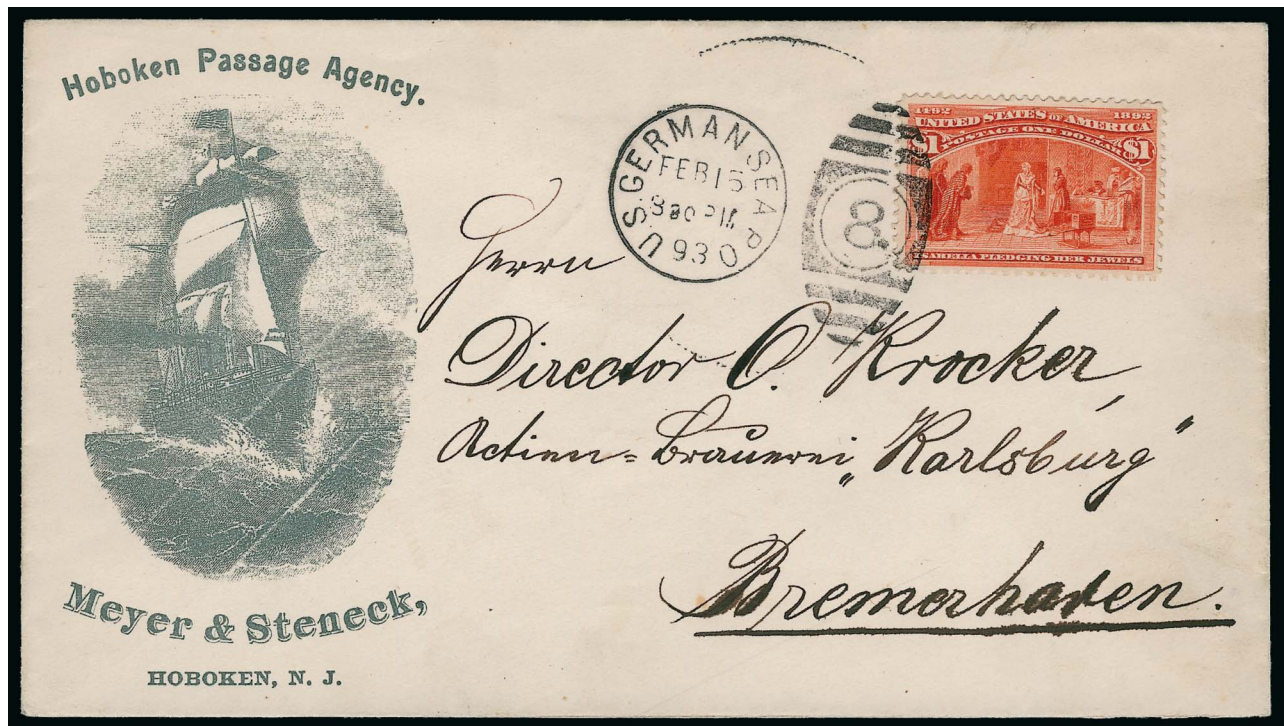 Hoboken Passage Agency.
Meyer & Steneck,
HOBOKEN, N. J.
U.S. GERMAN SEA PO
FEB 15
3 30 PM
93
8
1492 1892
UNITED STATES OF AMERICA
$1 POSTAGE ONE DOLLAR $1
ISABELLA PLEDGING HER JEWELS
Herrn
Director O. Krocker,
Actien=Brauerei „Karlsburg"
Bremerhaven.